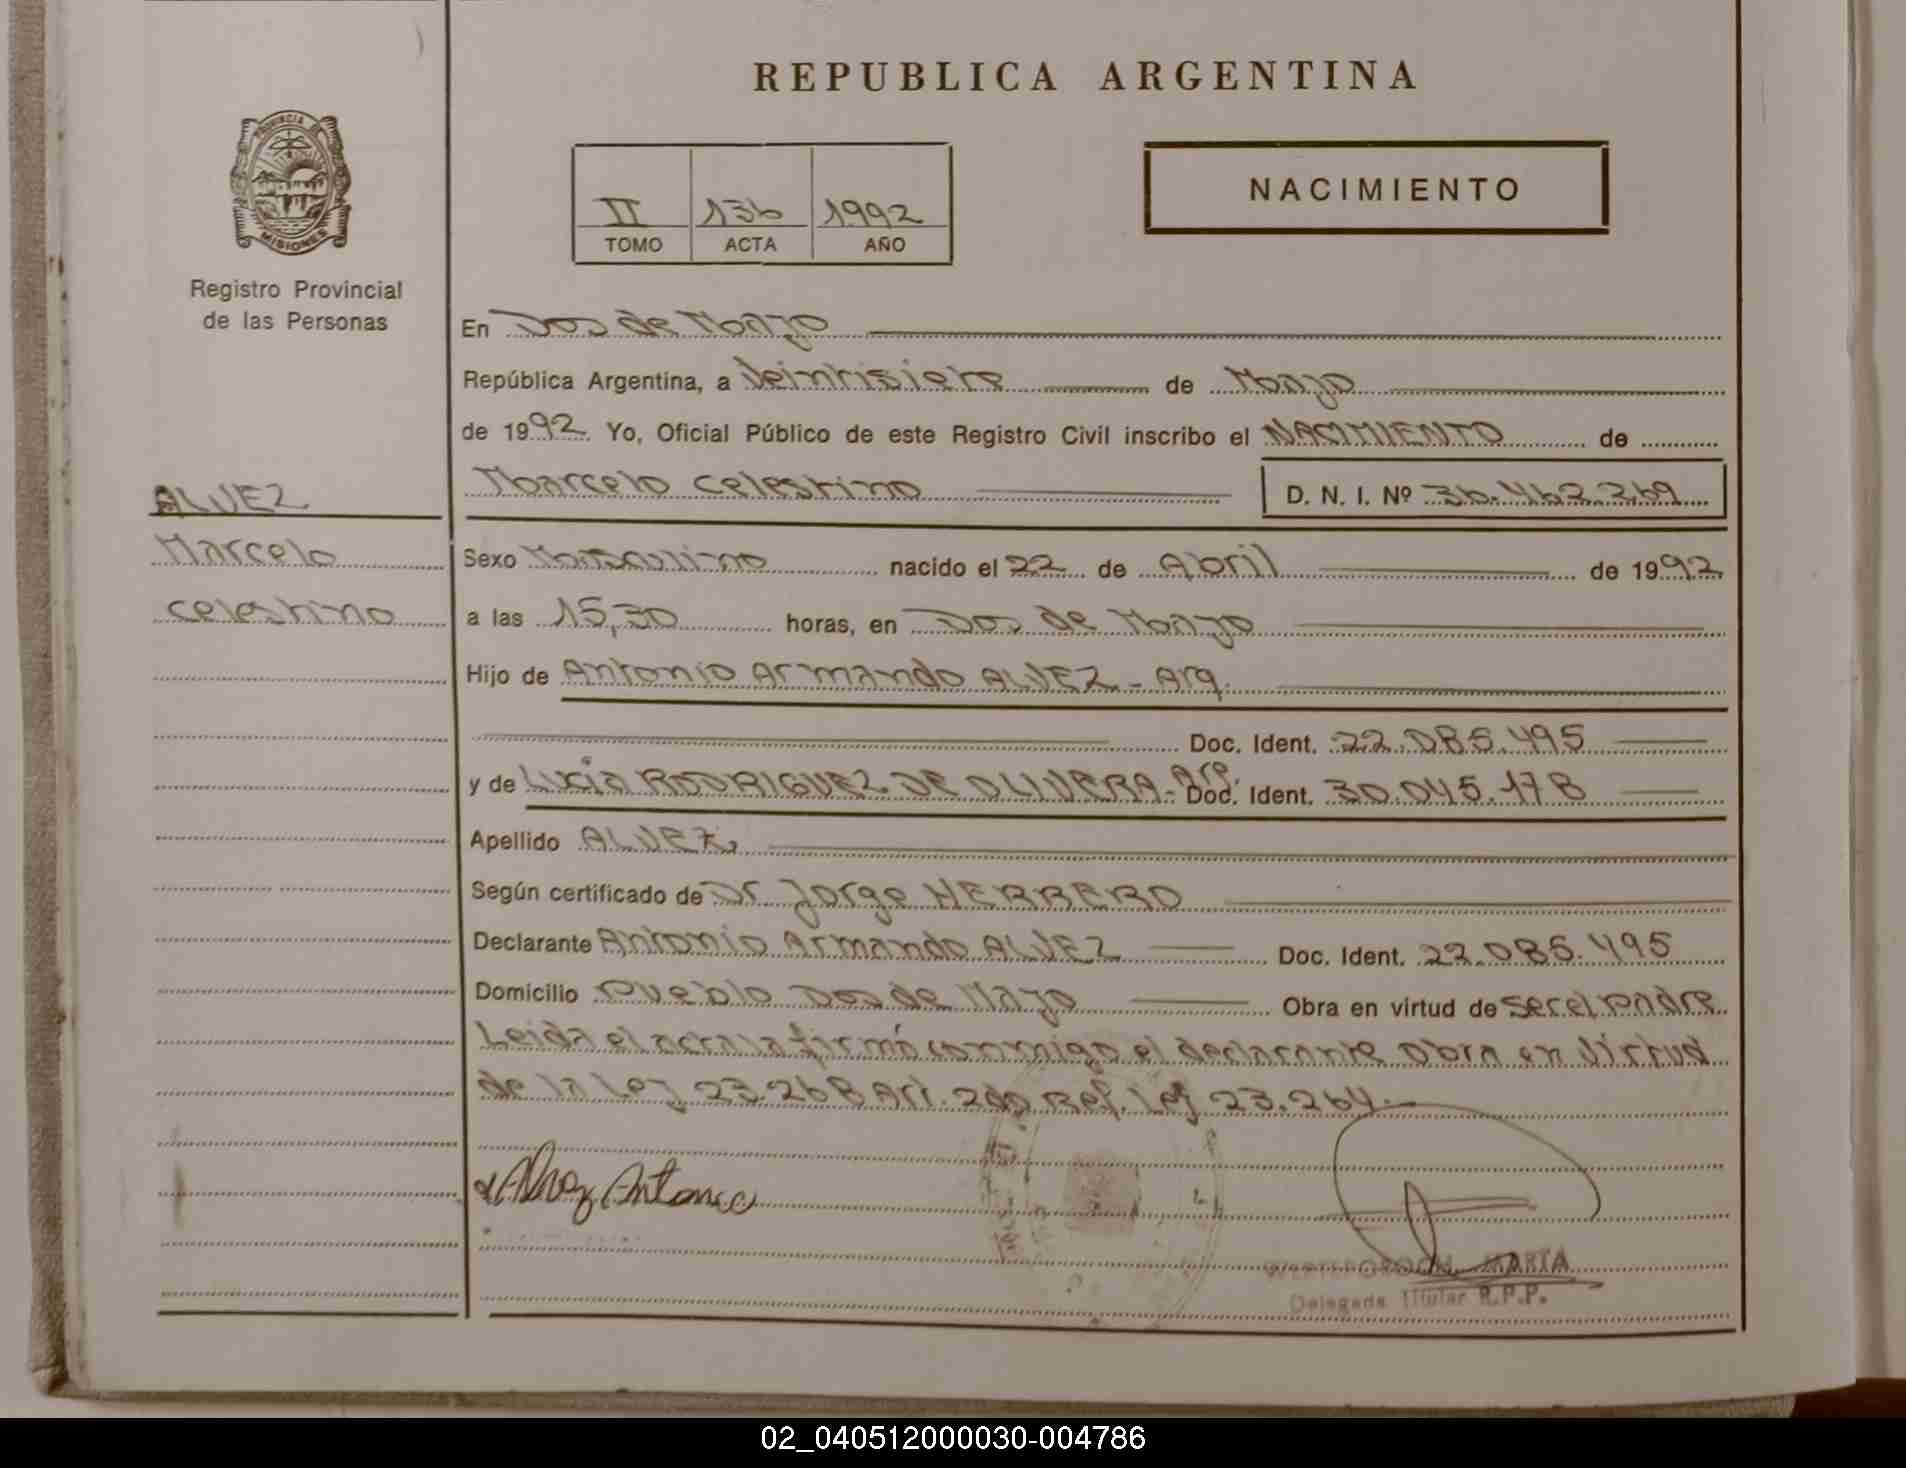 REPUBLICA ARGENTINA
PROVINCIA DE
MISIONES
Registro Provincial
de las Personas
II 136 1992
TOMO ACTA AÑO
NACIMIENTO
En Dos de Mayo
República Argentina, a Veintisiete de Mayo
de 1992. Yo, Oficial Público de este Registro Civil inscribo el NACIMIENTO de
Marcelo Celestino D. N. I. Nº 36.462.269
ALVEZ
Marcelo
Celestino
Sexo Masculino nacido el 22 de Abril de 1992
a las 15,30 horas, en Dos de Mayo
Hijo de Antonio Armando ALVEZ - Arg.
Doc. Ident. 22.085.495
y de Lucia RODRIGUEZ DE OLIVERA - Arg. Doc. Ident. 30.045.178
Apellido ALVEZ,
Según certificado de Dr. Jorge HERRERO
Declarante Antonio Armando ALVEZ Doc. Ident. 22.085.495
Domicilio Pueblo Dos de Mayo Obra en virtud de ser el padre
Leida el acta la firmó conmigo el declarante Obra en virtud
de la Ley 23.268 Art. 2do Ref. Ley 23.264.-
Alvez Antonio
MARTA
Delegada Titular R.P.P.
02_040512000030-004786